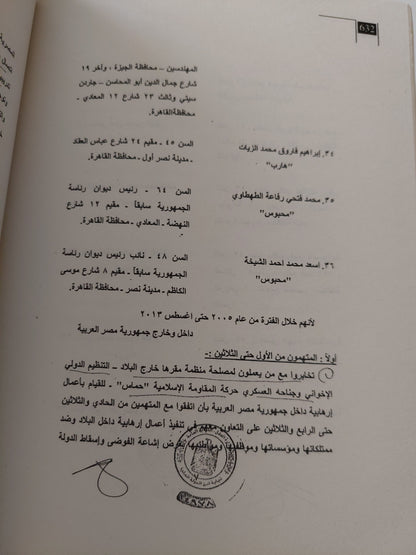 632
المهندسين – محافظة الجيزة ، وآخر ١٩
شارع جمال الدين أبو المحاسن – جاردن
سيتي وثالث ٢٣ شارع ١٢ المعادي –
محافظة القاهرة.
٣٤. إبراهيم فاروق محمد الزيات
"هارب"
السن ٤٥ – مقيم ٢٤ شارع عباس العقاد
– مدينة نصر أول – محافظة القاهرة.
٣٥. محمد فتحي رفاعة الطهطاوي
"محبوس"
السن ٦٤ – رئيس ديوان رئاسة
الجمهورية سابقاً – مقيم ١٢ شارع
النهضة – المعادي – محافظة القاهرة.
٣٦. اسعد محمد احمد الشيخة
"محبوس"
السن ٤٨ – نائب رئيس ديوان رئاسة
الجمهورية سابقاً – مقيم ٨ شارع موسى
الكاظم – مدينة نصر – محافظة القاهرة.
لأنهم خلال الفترة من عام ٢٠٠٥ حتى اغسطس ٢٠١٣
داخل وخارج جمهورية مصر العربية
أولاً : المتهمون من الأول حتى الثلاثين :-
تخابروا مع من يعملون لمصلحة منظمة مقرها خارج البلاد – التنظيم الدولي
الإخواني وجناحه العسكري حركة المقاومة الإسلامية "حماس" – للقيام بأعمال
إرهابية داخل جمهورية مصر العربية بأن اتفقوا مع المتهمين من الحادي والثلاثين
حتى الرابع والثلاثين على التعاون معهم في تنفيذ أعمال إرهابية داخل البلاد وضد
ممتلكاتها ومؤسساتها وموظفيها ومواطنيها بغرض إشاعة الفوضى وإسقاط الدولة